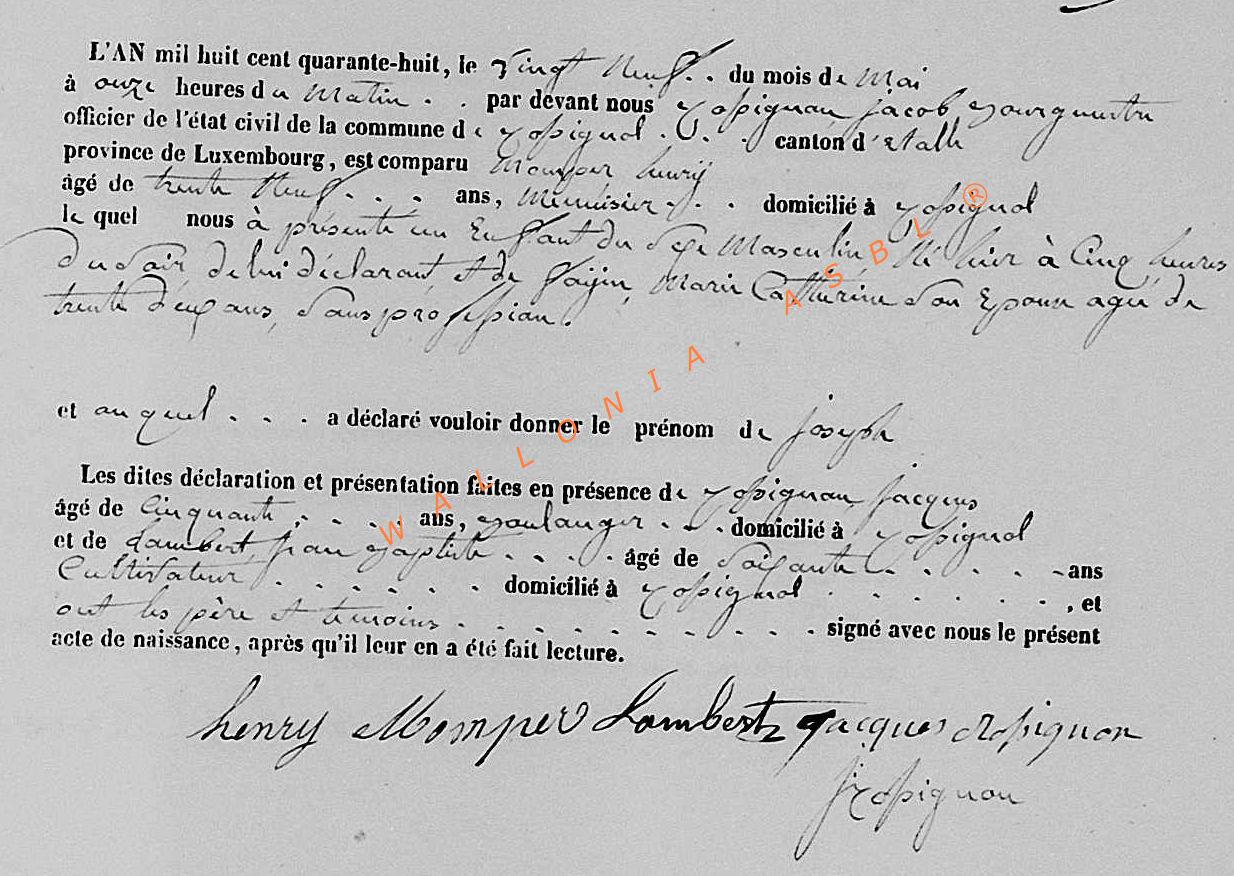 L'AN mil huit cent quarante-huit, le vingt neuf . . du mois de mai
à onze heures du matin . . par devant nous Rossignon Jacob Bourgmestre
officier de l'état civil de la commune de Rossignol . . . canton d'Etalle
province de Luxembourg, est comparu Momper henry
âgé de trente neuf . . . ans, Menuisier . . . domicilié à Rossignol
le quel nous à présenté un Enfant du Sexe Masculin, né hier à Cinq heures
du Soir, de lui déclarant et de Marie Catherine Son Epouse agée de
trente deux ans, Sans profession.
et auquel . . . a déclaré vouloir donner le prénom de joseph
Les dites déclaration et présentation faites en présence de Rossignon Jacques
âgé de Cinquante . . . . ans, Boulanger . . . domicilié à Rossignol
et de Lambert jean Baptiste . . . . âgé de Soixante . . . . . ans
Cultivateur . . . . . . domicilié à Rossignol . . . . . . . , et
ont les père et temoins . . . . . . . . . . . signé avec nous le présent
acte de naissance, après qu'il leur en a été fait lecture.
henry Momper Lambert Jacques Rossignon
J Rossignon
WALLONIA ASBL ®